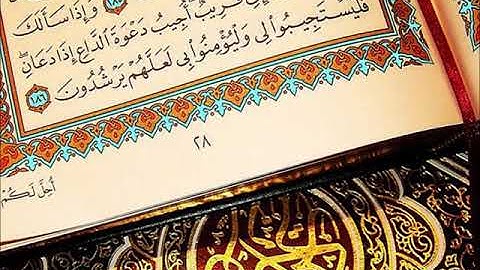 وَإِذَا سَأَلَكَ
قَرِيبٌ أُجِيبُ دَعْوَةَ ٱلدَّاعِ إِذَا دَعَانِ ۖ
فَلْيَسْتَجِيبُوا۟ لِى وَلْيُؤْمِنُوا۟ بِى لَعَلَّهُمْ يَرْشُدُونَ ١٨٦
٢٨
أُحِلَّ لَكُمْ